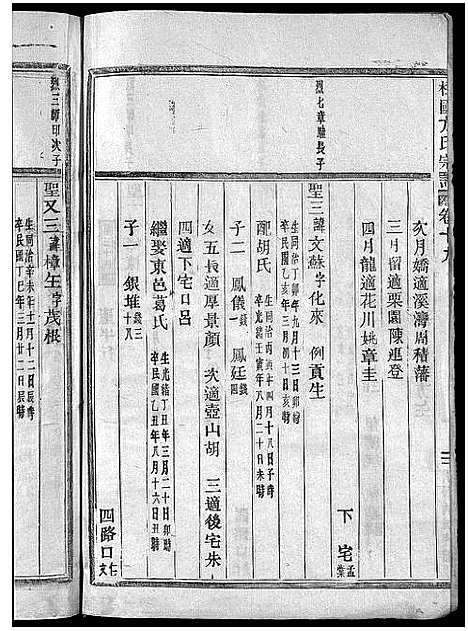 桂國方氏宗譜 卷十九
次月嬌適溪灣周積藩
三月留適栗園陳延登
四月龍適花川姚章圭
下宅 孟業
烈七章驗長子
聖三諱文蘇字化來 例貢生 生同治丁卯年九月十三日卯時 卒民國乙亥年三月初十日亥時
配胡氏 生同治丙寅年四月十八日子時 卒光緒壬寅年八月二十日未時
子二 鳳儀錢一 鳳廷錢四
女五長適厚景顏 次適壺山胡 三適後宅朱
四適下宅口呂
繼娶東邑葛氏 生光緒丁丑年三月二十日卯時 卒民國乙丑年八月十六日丑時
子一 銀堆錢十三八
四路口
聖又三諱樟生字茂根 生同治辛未年十一月十二日辰時 卒民國丁巳年三月廿二日辰時